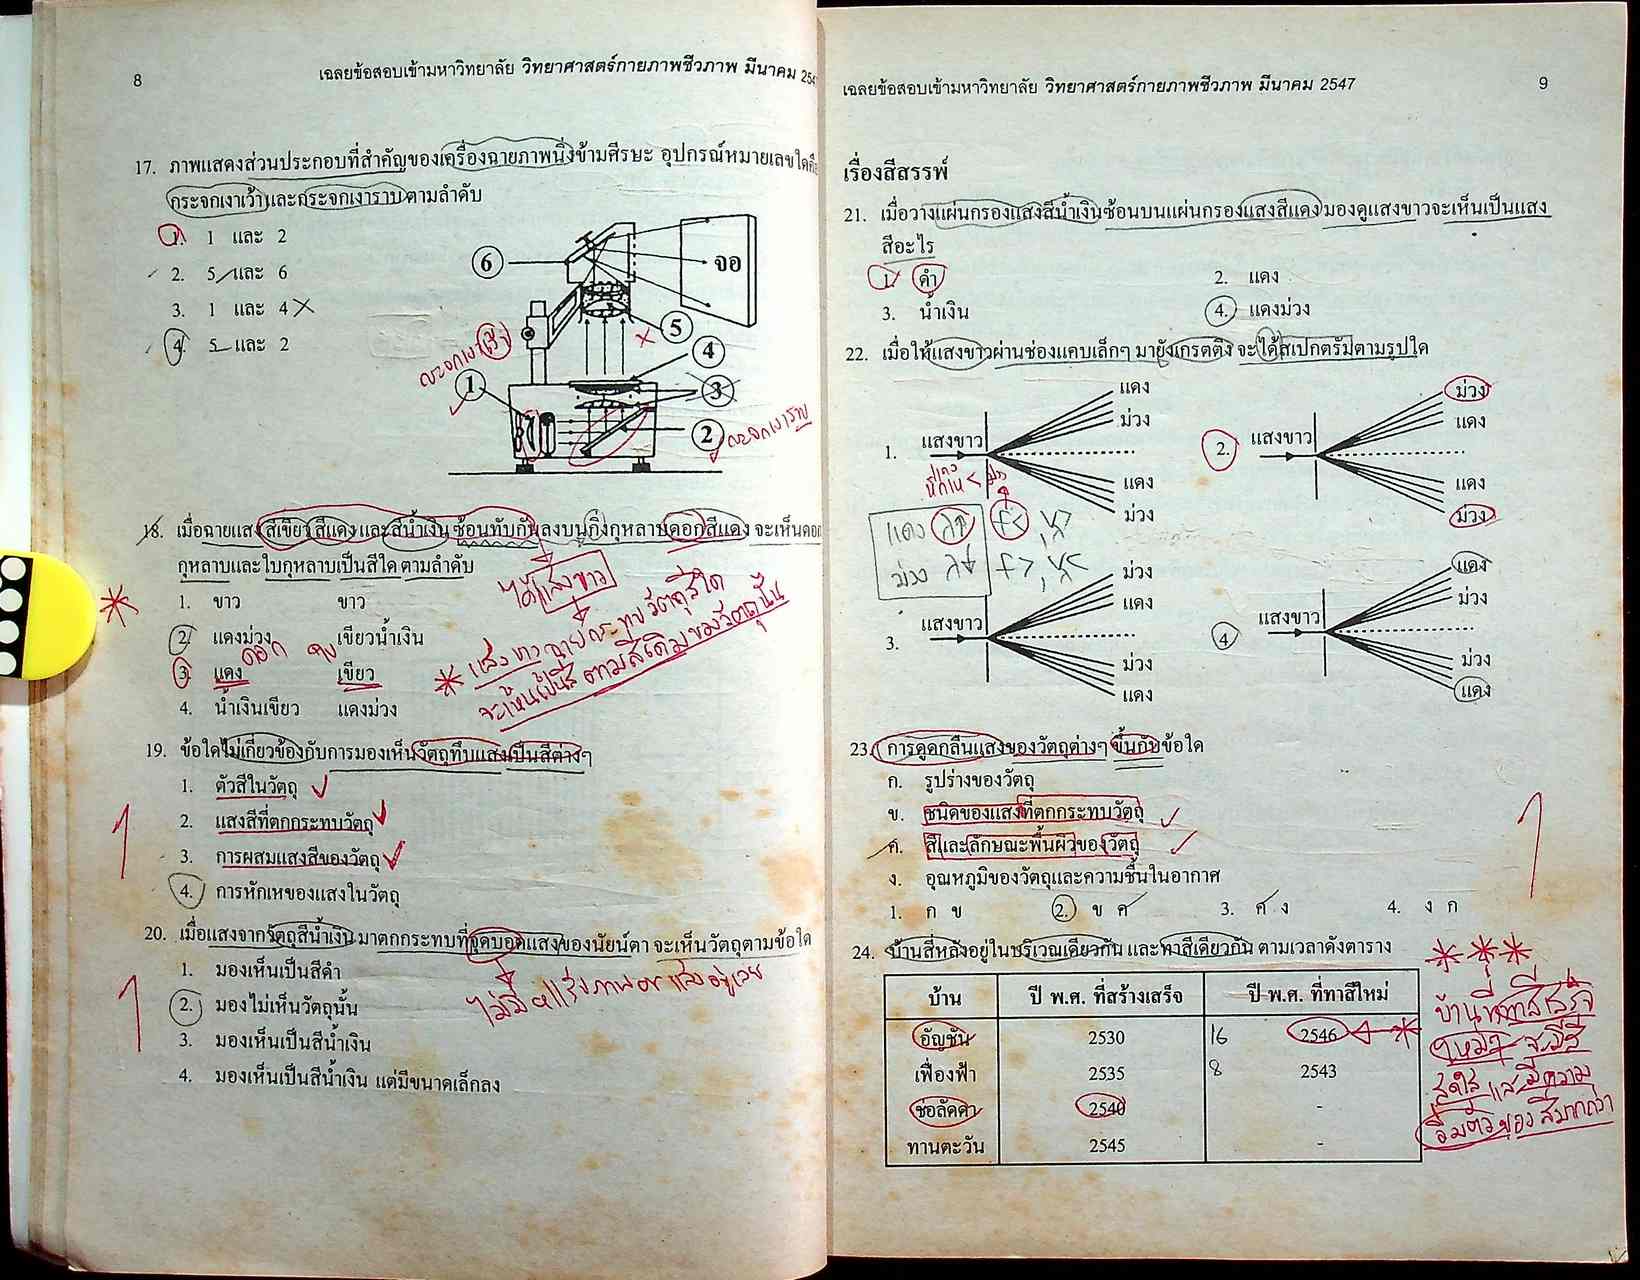 8 เฉลยข้อสอบเข้ามหาวิทยาลัย วิทยาศาสตร์กายภาพชีวภาพ มีนาคม
17. ภาพแสดงส่วนประกอบที่สำคัญของเครื่องฉายภาพนิ่งข้ามศีรษะ อุปกรณ์หมายเลขใดคือ
กระจกเงาเว้าและกระจกเงาราบตามลำดับ
1. 1 และ 2
2. 5 และ 6
3. 1 และ 4
4. 5 และ 2
6
จอ
5
4
กระจกเงาเว้า
1
3
2
กระจกเงาราบ
18. เมื่อฉายแสงสีเขียว สีแดง และสีน้ำเงิน ซ้อนทับกันลงบนกิ่งกุหลาบดอกสีแดง จะเห็นดอก
กุหลาบและใบกุหลาบเป็นสีใด ตามลำดับ
ได้แสงขาว
1. ขาว ขาว
2. แดงม่วง เขียวน้ำเงิน
ดอก ใบ
3. แดง เขียว
4. น้ำเงินเขียว แดงม่วง
แสงขาวฉายกระทบวัตถุสีใด
จะเห็นเป็นสีตามสีเดิมของวัตถุนั้น
19. ข้อใดไม่เกี่ยวข้องกับการมองเห็นวัตถุทึบแสงเป็นสีต่างๆ
1. ตัวสีในวัตถุ
2. แสงสีที่ตกกระทบวัตถุ
3. การผสมแสงสีของวัตถุ
4. การหักเหของแสงในวัตถุ
20. เมื่อแสงจากวัตถุสีน้ำเงินมาตกกระทบที่จุดบอดแสงของนัยน์ตา จะเห็นวัตถุตามข้อใด
1. มองเห็นเป็นสีดำ
2. มองไม่เห็นวัตถุนั้น
3. มองเห็นเป็นสีน้ำเงิน
4. มองเห็นเป็นสีน้ำเงิน แต่มีขนาดเล็กลง
เฉลยข้อสอบเข้ามหาวิทยาลัย วิทยาศาสตร์กายภาพชีวภาพ มีนาคม 2547 9
เรื่องสีสรรพ์
21. เมื่อวางแผ่นกรองแสงสีน้ำเงินซ้อนบนแผ่นกรองแสงสีแดง มองดูแสงขาวจะเห็นเป็นแสง
สีอะไร
1. ดำ 2. แดง
3. น้ำเงิน 4. แดงม่วง
22. เมื่อให้แสงขาวผ่านช่องแคบเล็กๆ มายังเกรตติง จะได้สเปกตรัมตามรูปใด
1. แสงขาว แดง ม่วง แดง ม่วง
2. แสงขาว ม่วง แดง แดง ม่วง
แดง
หักเห < ม่วง
แดง λ↑ f<
ม่วง λ↓ f>
3. แสงขาว ม่วง แดง ม่วง แดง
4. แสงขาว แดง ม่วง ม่วง แดง
23. การดูดกลืนแสงของวัตถุต่างๆ ขึ้นกับข้อใด
ก. รูปร่างของวัตถุ
ข. ชนิดของแสงที่ตกกระทบวัตถุ
ค. สีและลักษณะพื้นผิวของวัตถุ
ง. อุณหภูมิของวัตถุและความชื้นในอากาศ
1. ก ข 2. ข ค 3. ค ง 4. ง ก
24. บ้านสี่หลังอยู่ในบริเวณเดียวกัน และทาสีเดียวกัน ตามเวลาดังตาราง
บ้าน ปี พ.ศ. ที่สร้างเสร็จ ปี พ.ศ. ที่ทาสีใหม่
อัญชัน 2530 16 2546
เฟื่องฟ้า 2535 8 2543
ช่อลัดดา 2540 -
ทานตะวัน 2545 -
บ้านที่ทาสีเสร็จ
ใหม่ๆ จะมีสี
สดใส และมีความ
อิ่มตัวของสีมากกว่า